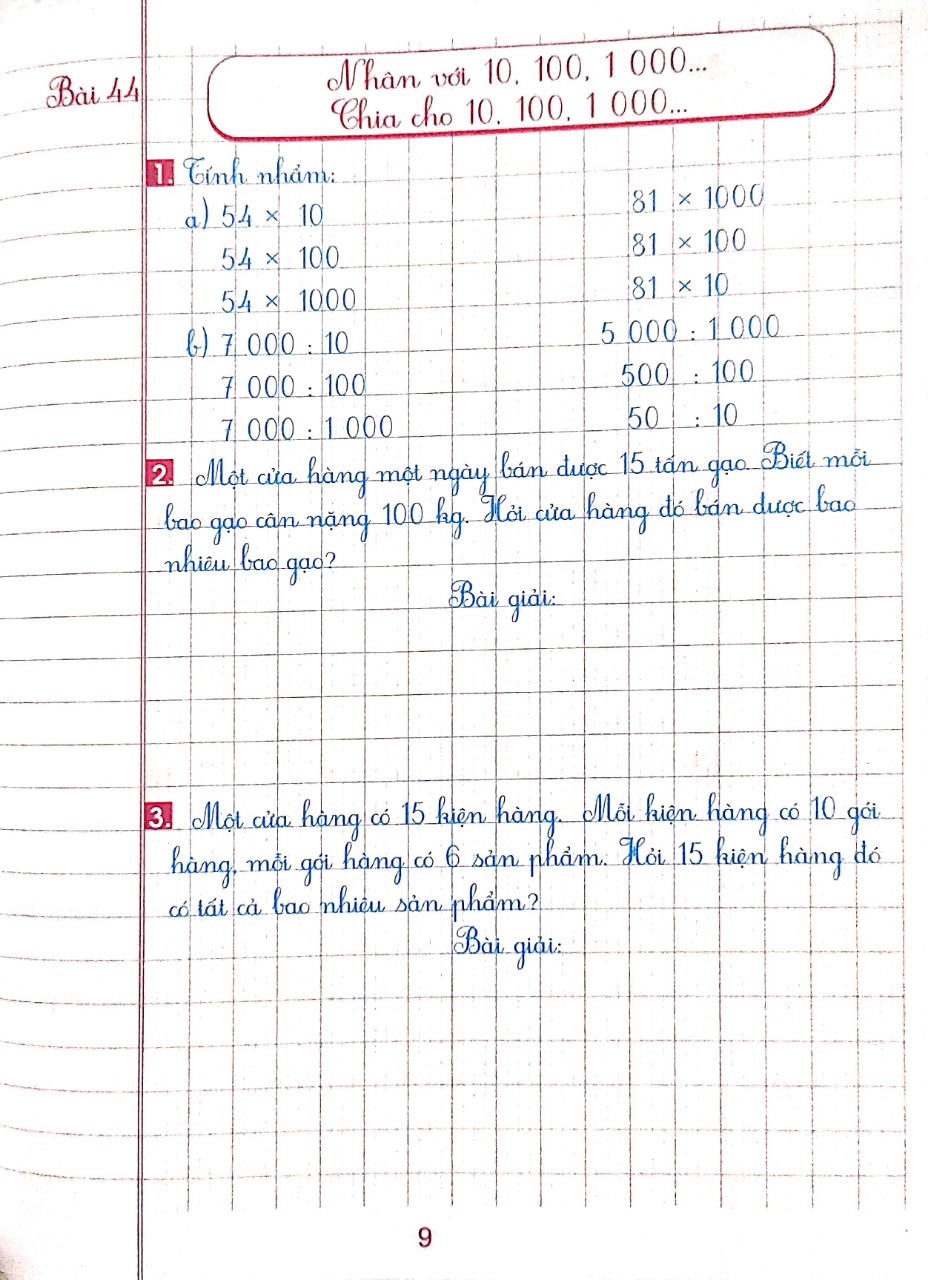 Bài 44
Nhân với 10, 100, 1 000...
Chia cho 10, 100, 1 000...
1. Tính nhẩm:
a) 54 × 10 81 × 1000
54 × 100 81 × 100
54 × 1000 81 × 10
b) 7 000 : 10 5 000 : 1 000
7 000 : 100 500 : 100
7 000 : 1 000 50 : 10
2. Một cửa hàng một ngày bán được 15 tấn gạo. Biết mỗi
bao gạo cân nặng 100 kg. Hỏi cửa hàng đó bán được bao
nhiêu bao gạo?
Bài giải:
3. Một cửa hàng có 15 kiện hàng. Mỗi kiện hàng có 10 gói
hàng, mỗi gói hàng có 6 sản phẩm. Hỏi 15 kiện hàng đó
có tất cả bao nhiêu sản phẩm?
Bài giải:
9